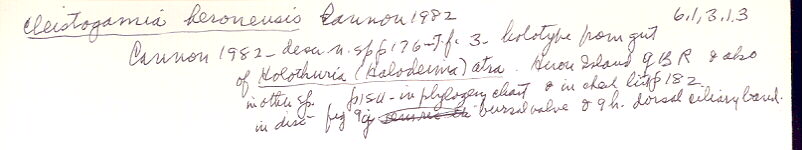 Cleistogamia heronensis Cannon 1982 6.1,3.1.3
Cannon 1982 - descr. n. sp p 176 - T. f. 3 - holotype from gut
of Holothuria (Halodeima) atra. Heron Island G B R & also
in other sp. p 154 - in phylogeny chart & in check list p 182.
in disc - fig 9g bursal valve & 9h. dorsal ciliary band.